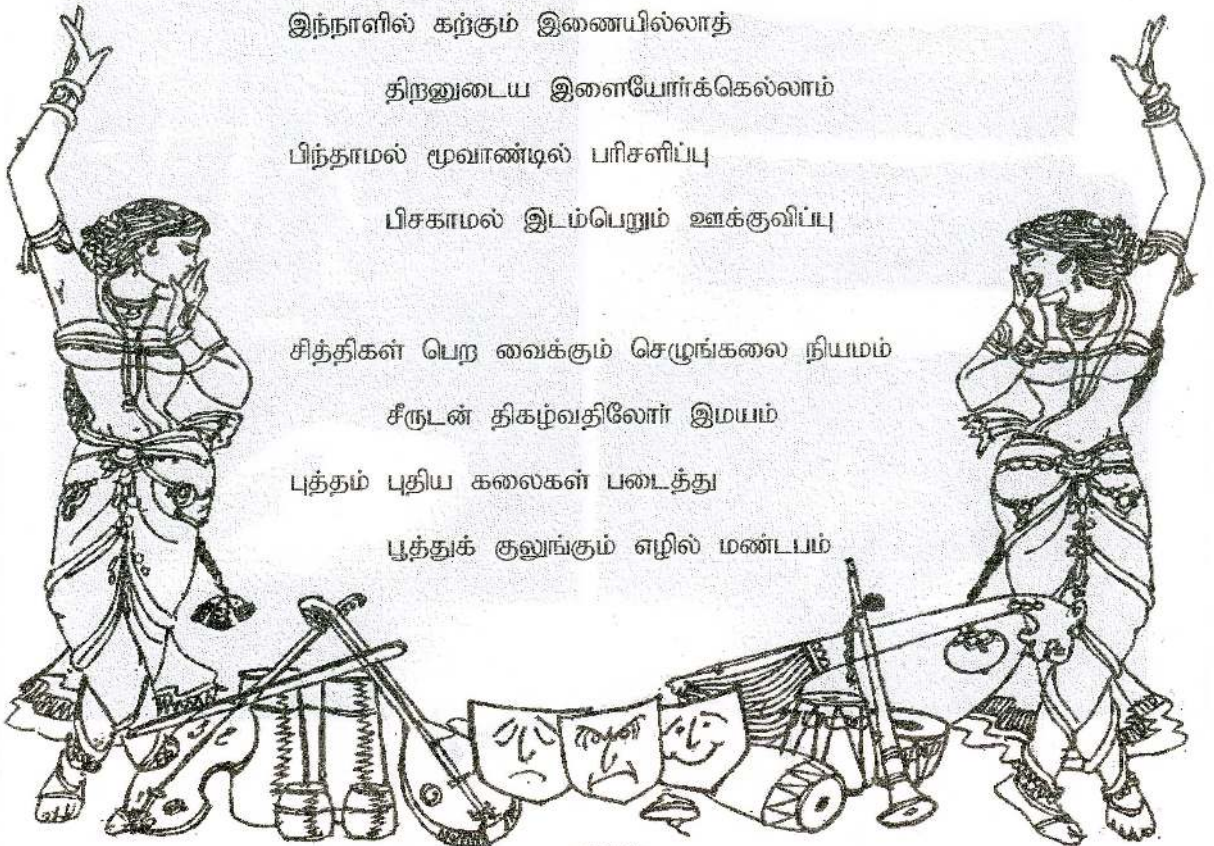 இந்நாளில் கற்கும் இணையில்லாத்
திறனுடைய இளையோர்க்கெல்லாம்
பிந்தாமல் மூவாண்டில் பரிசளிப்பு
பிசகாமல் இடம்பெறும் ஊக்குவிப்பு
சித்திகள் பெற வைக்கும் செழுங்கலை நியமம்
சீருடன் திகழ்வதிலோர் இமயம்
புத்தம் புதிய கலைகள் படைத்து
பூத்துக் குலுங்கும் எழில் மண்டபம்